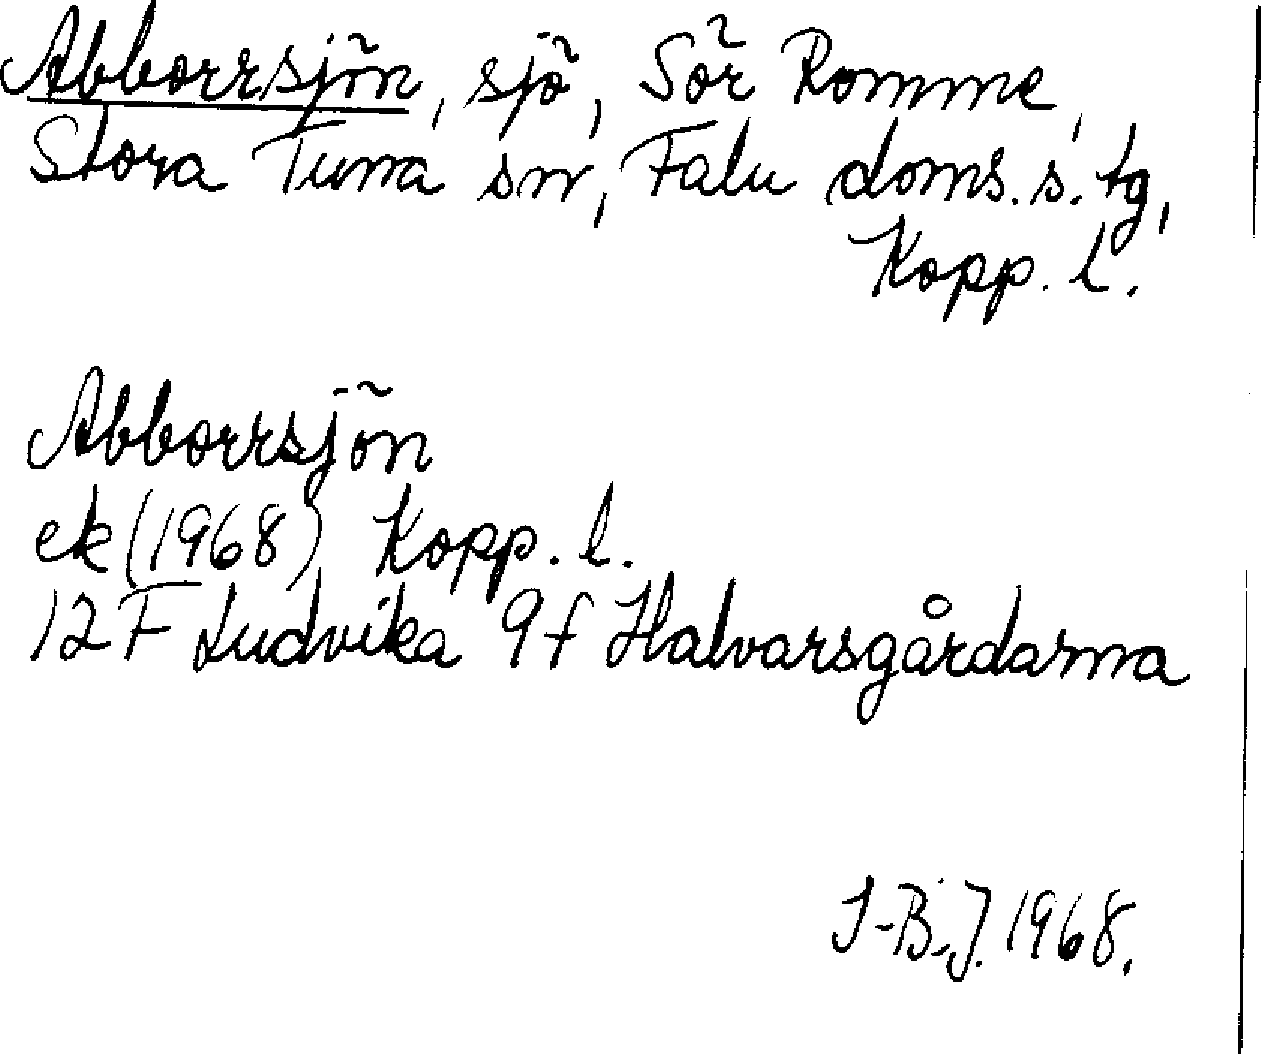 Abborrsjön, sjö, Sör Romme,
Stora Tuna sn, Falu doms. s. tg,
Kopp. l.
Abborrsjön
ek (1968) Kopp. l.
12 F Ludvika 9 f Halvarsgårdarna
I-B.J. 1968.